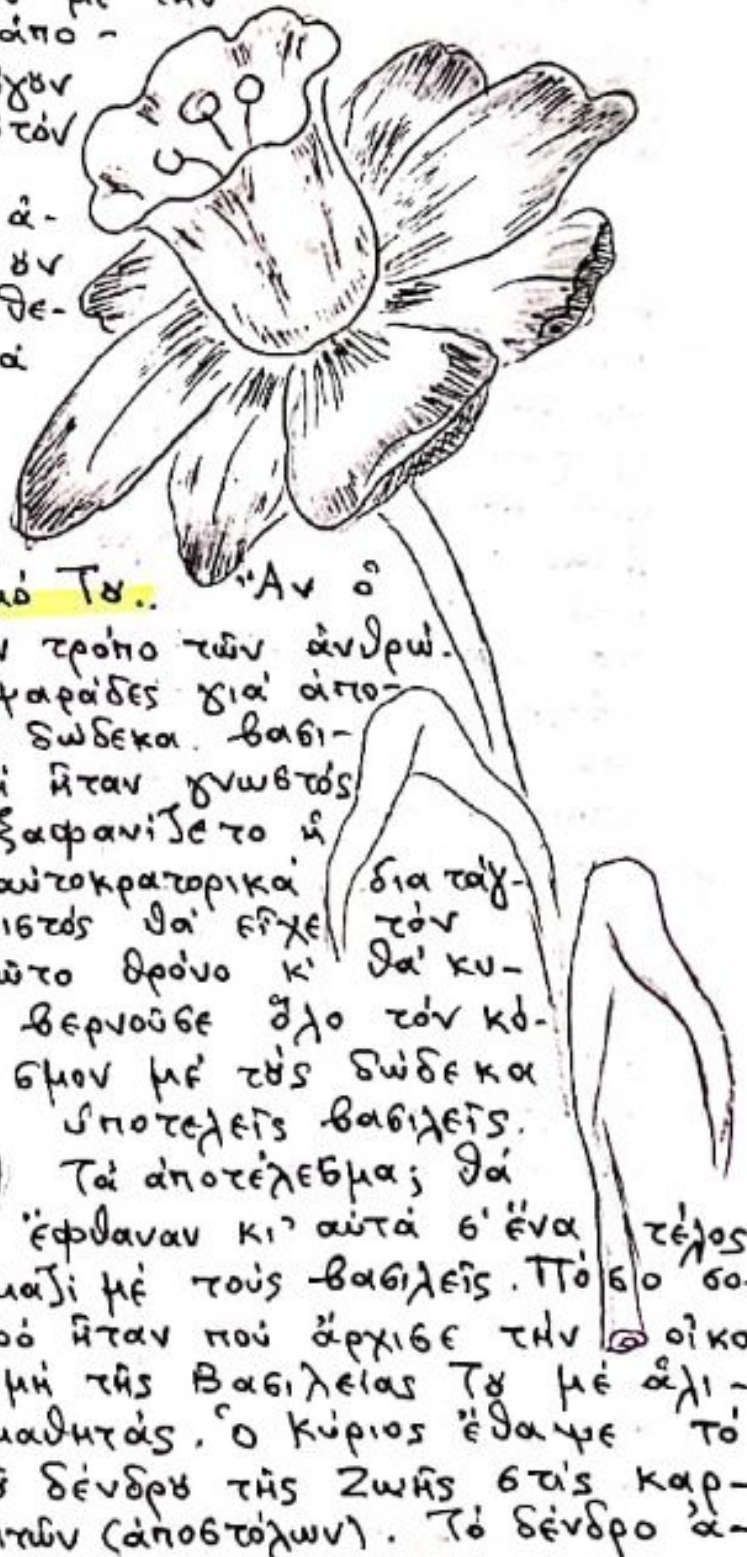 άπο-
ἀ-
θε-
Τȣ.. "Αν ὁ
τρόπο τῶν ἀνθρώ-
ψαράδες γιά ἀπο-
δώδεκα βασι-
ἦταν γνωστός
ξαφανίζετο ἡ
αὐτοκρατορικά διατάγ-
ιστός θά εἶχε τόν
ῶτο θρόνο κ' θά κυ-
βερνοῦσε ὅλο τόν κό-
σμον μέ τȣ́ς δώδεκα
ὑποτελεῖς βασιλεῖς.
Τά ἀποτέλεσμα; θά
ἔφθαναν κι' αὐτά σ' ἕνα τέλος
μαζί μέ τούς βασιλεῖς. Πόσο σο-
ό ἦταν πού ἄρχισε τήν οἰκο
μή τῆς Βασιλείας Τȣ μέ ἁλι-
μαθητάς. Ὁ Κύριος ἔθαψε τό
δένδρȣ τῆς Ζωῆς στίς καρ-
ιτῶν (ἀποστόλων). Τό δένδρο ἀ-